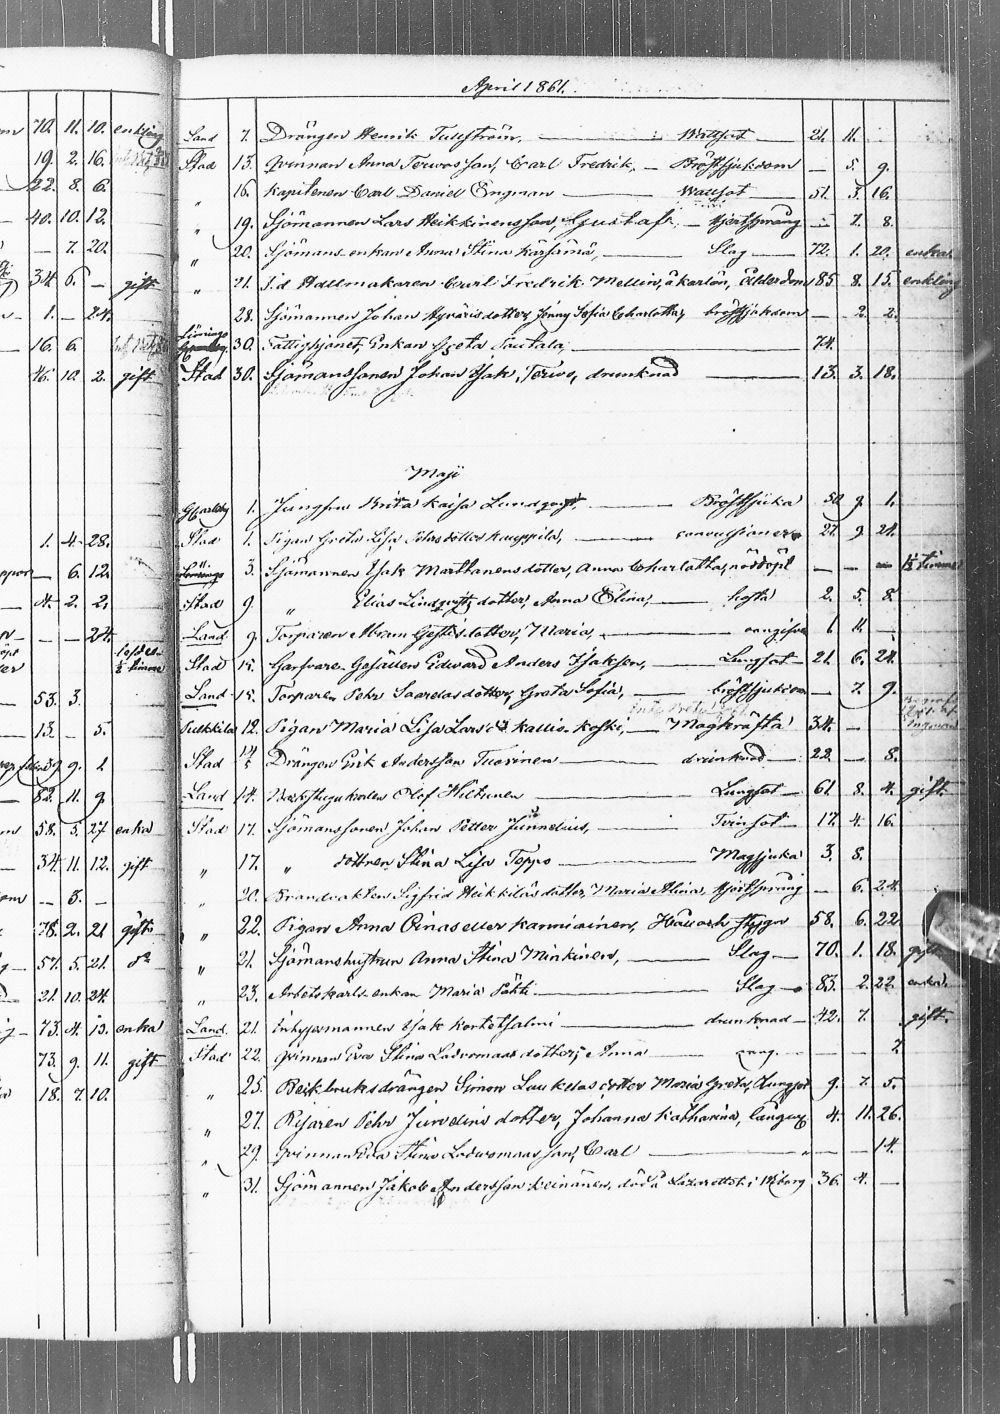 April 1861.
Land 7. Drängen Henrik Tullström, Wattsot 21. 11.
Stad 13. Qvinnan Anna Terwos son, Carl Fredrik, Bröstsjukdom — 5. 9.
" 16. Kapitenen Carl Daniel Engman Wattsot 51. 3. 16.
" 19. Sjömannen Lars Heikkinens son, Gustaf, Hjertsprång — 7. 8.
" 20. Sjömans enkan Anna Stina Kärsämä, Slag 72. 1. 20. enka
" 21. f.d. Hattmakaren Carl Fredrik Mellin, å Karlön, Ålderdom 85 8. 15. enkling
28. Sjömannen Johan dotter, Jenny Sofia Charlotta, bröstsjukdom — 2. 2.
30. Fattighjonet, Enkan Greta Tautala, 74.
Stad 30. Sjömanssonen Johan Isak Terwo, drunknad 13. 3. 18.
Maji
GCarleby 1. Jungfrun Brita Kaisa Lundqvist, Bröstsjuka 50 9. 1.
Stad 1. Pigan Greta Lisa dotter Kauppila, convulsioner 27. 9. 24.
3. Sjömannen Isak Marttanens dotter, Anna Charlotta, nöddöpt — — — ½ timme
Stad 9. " Elias Lindqvists dotter, Anna Elina, hosta 2. 5. 8.
Land 9. Torparen Abram dotter, Maria, oangifven 1 11. —
Stad 15. Garfvare Gesällen Edward Anders Isaksson, Lungsot 21. 6. 24.
Land 15. Torparen Pehr Saarelas dotter, Greta Sofia, bröstsjukdom — 7. 9.
Pulkkila 12. Pigan Maria Lisa Larsd. Kalliokoski, Magkräfta 34. —
Stad 14/5 Drängen Erik Andersson Tuorinen drunknad 22. — 8.
Land 14. Olof Hiltunen Lungsot 61. 8. 4. gift.
Stad 17. Sjömanssonen Johan Petter Junnelius, Tvinsot 17. 4. 16.
" 17. " dottren Stina Lisa Toppo Magsjuka 3. 8.
" 20. Brandvakten Sigfrid Heikkiläs dotter, Maria Alina, Hjertsprång — 6. 24.
" 22. Pigan Anna Pinas eller Kanniainen, Håll och stygn 58. 6. 22
" 21. Sjömanshustrun Anna Stina Minkinen, Slag 70. 1. 18. gift
" 23. Arbetskarls enkan Maria Pätti Slag 83. 2. 22 enka
Land 21. Inhysesmannen Isak Kortetsalmi drunknad 42. 7. gift.
Stad 22. Qvinnan Eva Stina Ladvomaas dotter, Anna — — 2
" 25. Beckbruksdrängen Simon Laukelas dotter Maria Greta, Lungsot 9. 7. 5.
" 27. Resaren Pehr Junelins dotter, Johanna Katharina, 4. 11. 26.
" 29. Qvinnan Eva Stina Ladvomaas son, Carl " — — 14.
" 31. Sjömannen Jakob Andersson Keinänen, död å Lazarettet i Wiborg 36. 4. —
70. 11. 10. enkling
19. 2. 16.
22. 8. 6.
40. 10. 12.
— 7. 20.
34 6. — gift
— 1. — 24.
16. 6.
46. 10. 2. gift
1. 4. 28.
— 6. 12.
4. 2. 2.
— — 24.
½ timme
53. 3.
13. — 5.
9. 1
82. 11. 9.
58. 5. 27 enka
34 11. 12. gift
— 8. —
78. 2. 21 gift
57. 5. 21. d:o
21. 10. 24.
73. 4. 13. enka
73. 9. 11. gift
18. 7. 10.